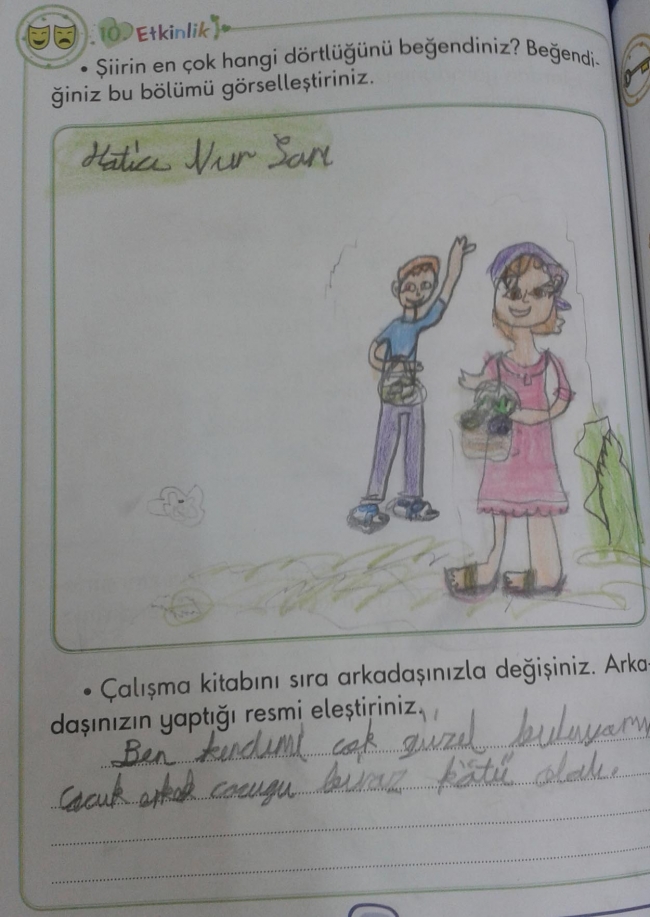 10. Etkinlik
• Şiirin en çok hangi dörtlüğünü beğendiniz? Beğendi-
ğiniz bu bölümü görselleştiriniz.
Hatice Nur Sarı
• Çalışma kitabını sıra arkadaşınızla değişiniz. Arka-
daşınızın yaptığı resmi eleştiriniz.
Ben kendimi çok güzel buluyorum
çocuk erkek çocuğu biraz kötü oldu.